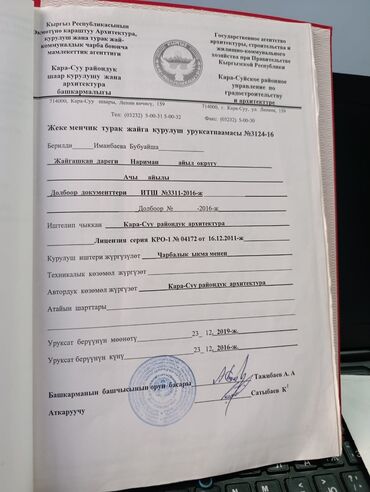 Кыргыз Республикасынын
Өкмөтүнө караштуу Архитектура,
курулуш жана турак жай-
коммуналдык чарба боюнча
мамлекеттик агенттиги
Кара-Суу райондук
шаар курулушу жана
архитектура
башкармалыгы
714000, Кара-Суу шаары, Ленин көчөсү, 159
Государственное агентство
архитектуры, строительства и
жилищно-коммунального
хозяйства при Правительстве
Кыргызской Республики
Кара-Суйское районное
управление по
градостроительству
и архитектуре
714000, г. Кара-Суу, ул. Ленина, 159
Тел: (03232) 5-00-31 5-00-32 Факс: (03232) 5-00-30
Жеке менчик турак жайга курулуш уруксатнаамасы №3124-16
Берилди Иманбаева Бубуайша
Жайгашкан дареги Нариман айыл округу
Ачы айылы
Долбоор документтери ИТШ №3311-2016-ж
Долбоор № -2016-ж.
Иштелип чыккан Кара-Суу райондук архитектура
Лицензия серия КРО-1 № 04172 от 16.12.2011-ж
Курулуш иштери жүргүзүлөт Чарбалык ыкма менен
Техникалык көзөмөл жүргүзөт
Автордук көзөмөл жүргүзөт Кара-Суу райондук архитектура
Атайын шарттары
Уруксат берүүнүн мөөнөтү 23_ 12, 2019-ж.
Уруксат берүүнүн күнү 23_ 12, 2016-ж.
Башкарманын башчысынын орун басары Ташбаев А. А
Аткаруучу Сатыбаев К